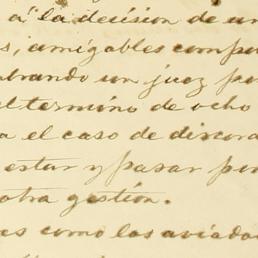 á la decision de un
s, amigables compo
brando un juez par
el termino de ocho
a el caso de discor
estar y pasar por
otra gestión.
as como los aviado